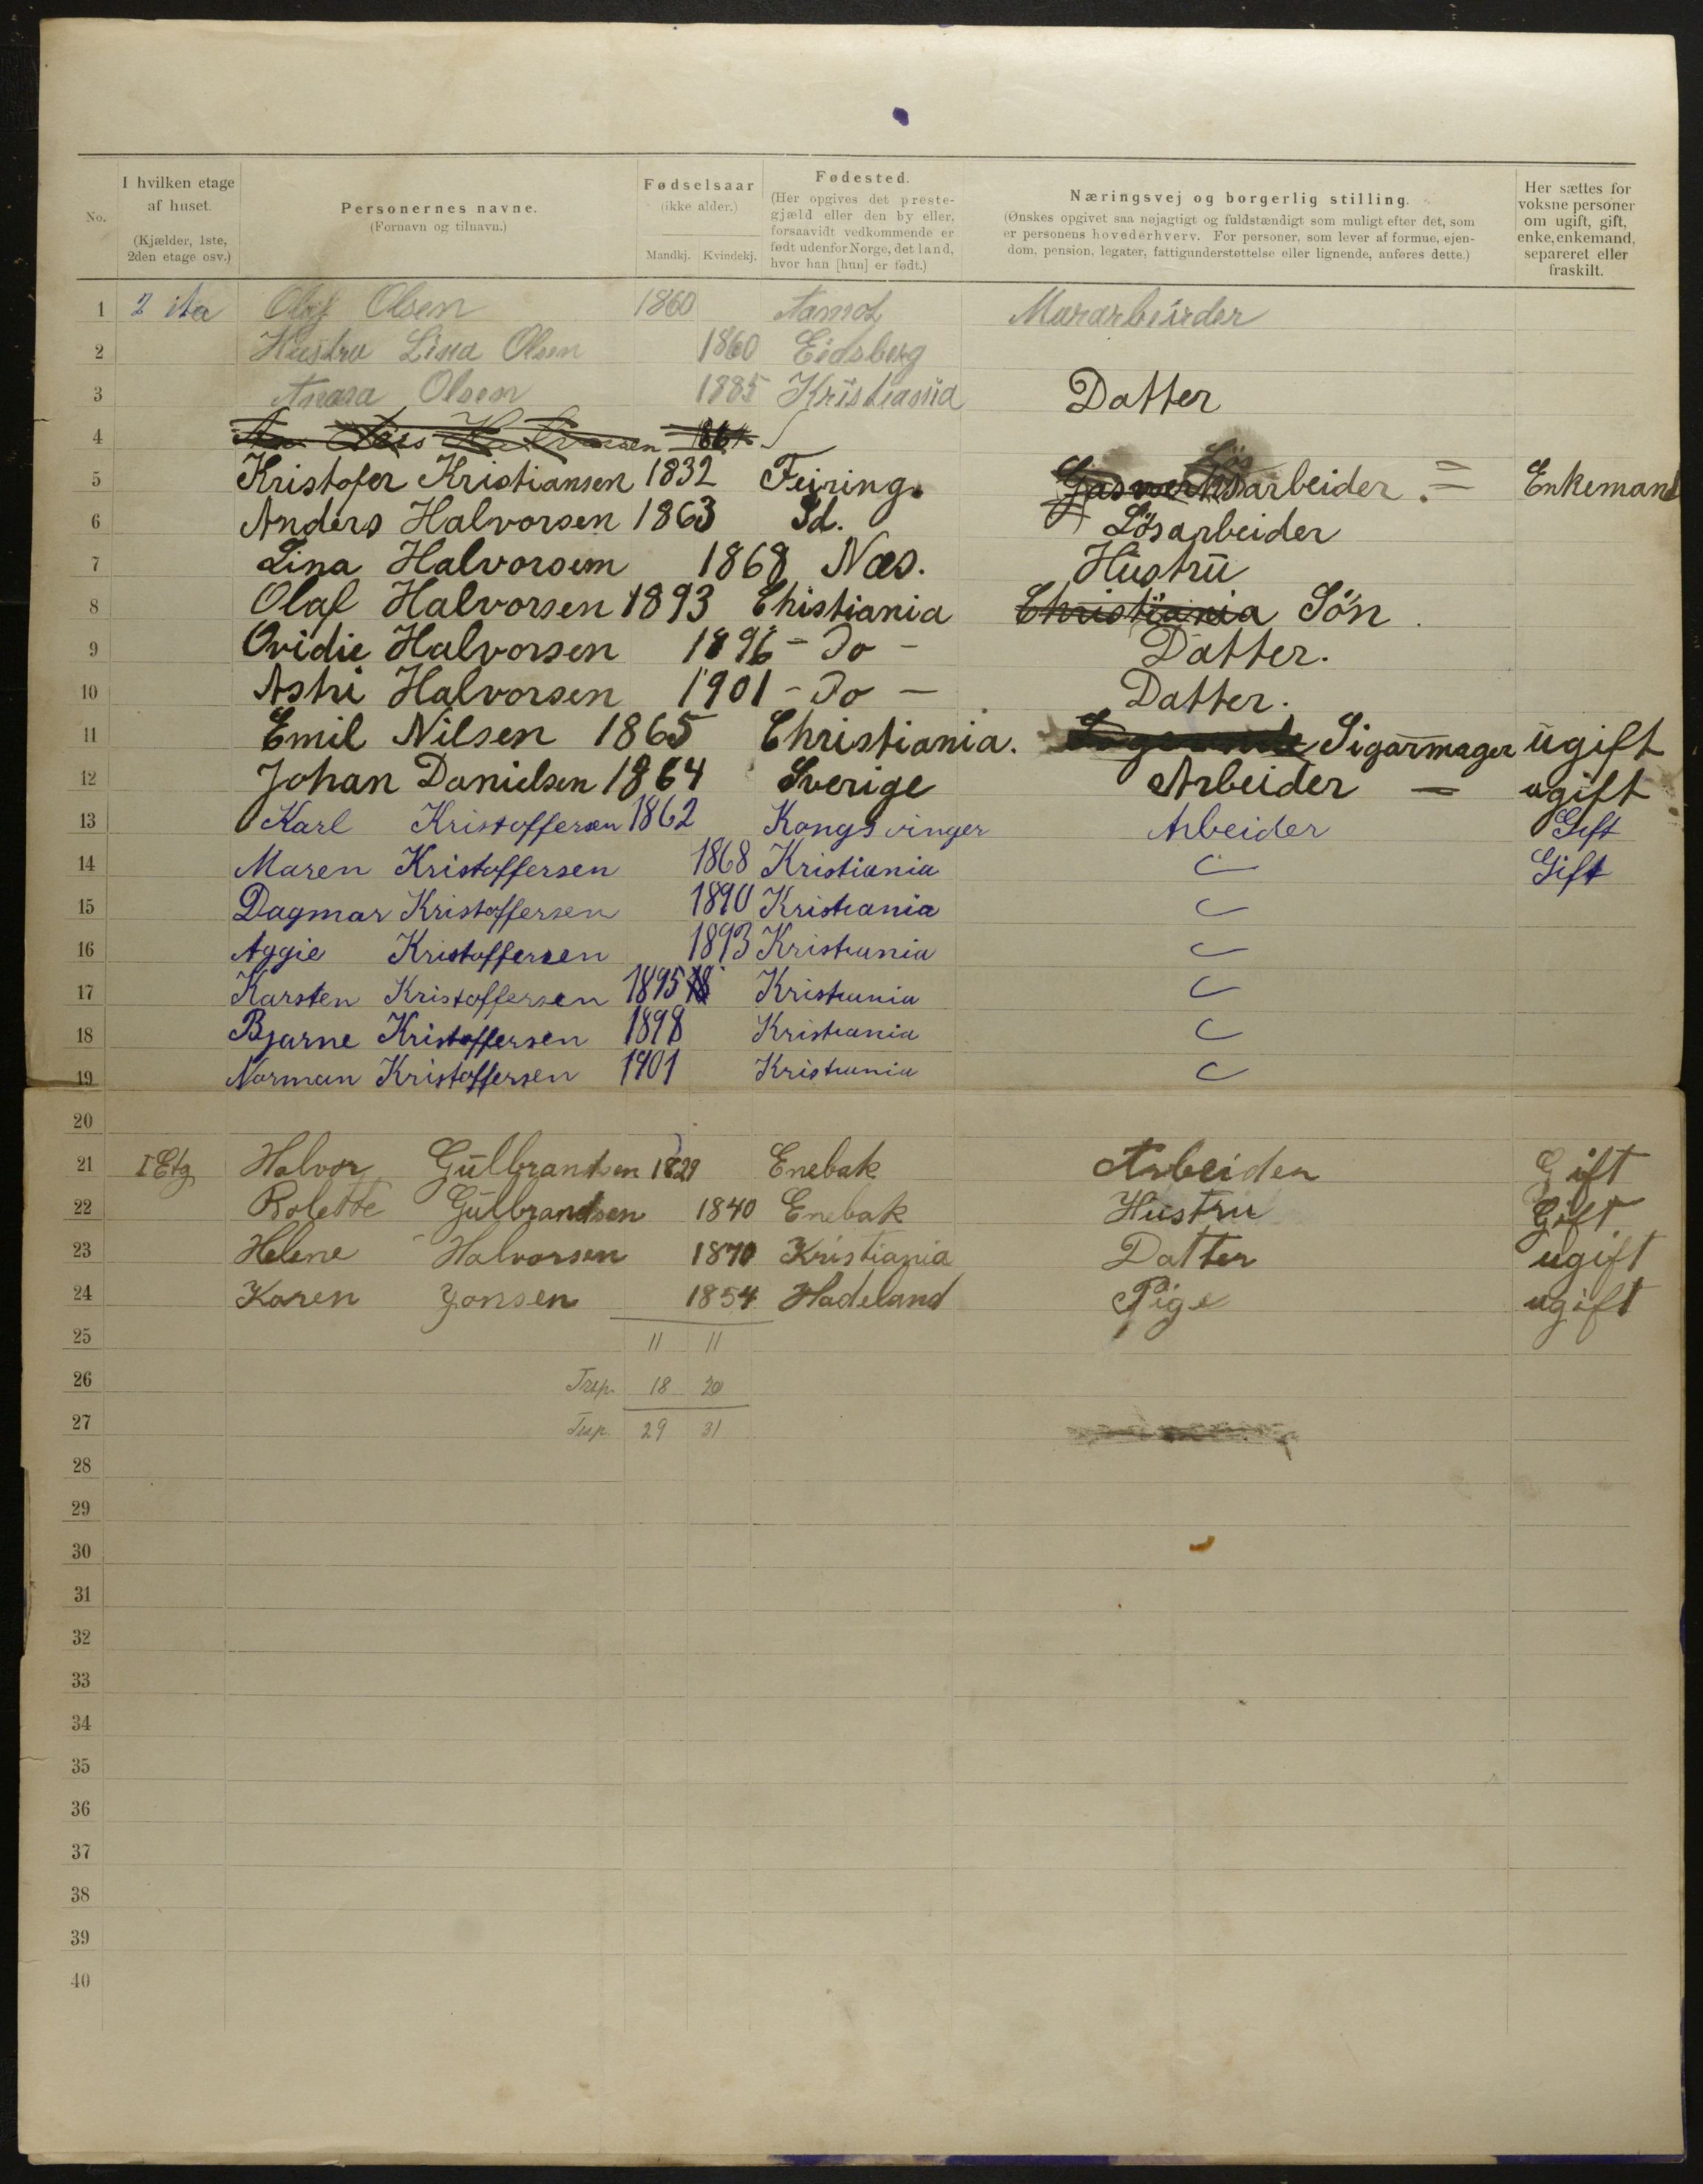 No.
I hvilken etage
af huset.
(Kjælder, 1ste,
2den etage osv.)
Personernes navne.
(Fornavn og tilnavn.)
Fødselsaar
(ikke alder.)
Mandkj. Kvindekj.
Fødested.
(Her opgives det preste-
gjæld eller den by eller,
forsaavidt vedkommende er
født udenfor Norge, det land,
hvor han [hun] er født.)
Næringsvej og borgerlig stilling.
(Ønskes opgivet saa nøjagtigt og fuldstændigt som muligt efter det, som
er personens hovederhverv. For personer, som lever af formue, ejen-
dom, pension, legater, fattigunderstøttelse eller lignende, anføres dette.)
Her sættes for
voksne personer
om ugift, gift,
enke, enkemand,
separeret eller
fraskilt.
1 2 Olaf Olsen 1860 Aamot Murarbeider
2 Hustru Lina Olsen 1860 Eidsberg
3 Olsen 1885 Kristiania Datter
4
5 Kristofer Kristiansen 1832 Feiring. Gasverks Lös arbeider = Enkemand
6 Anders Halvorsen 1863 Id. Lösarbeider
7 Lina Halvorsem 1868 Næs. Hustru
8 Olaf Halvorsen 1893 Christiania Christiania Sön
9 Ovidie Halvorsen 1896 - Do - Datter.
10 Astri Halvorsen 1901 - Do - Datter.
11 Emil Nilsen 1865 Christiania. Sigarmager ugift
12 Johan Danielsen 1864 Sverige Arbeider - ugift
13 Karl Kristoffersen 1862 Kongsvinger Arbeider Gift
14 Maren Kristoffersen 1868 Kristiania Gift
15 Dagmar Kristoffersen 1890 Kristiania
16 Aggie Kristoffersen 1893 Kristiania
17 Karsten Kristoffersen 1895 18 Kristiania
18 Bjarne Kristoffersen 1898 Kristiania
19 Norman Kristoffersen 1901 Kristiania
20
21 I Etg Halvor Gulbrandsen 1829 Enebak Arbeider Gift
22 Bolette Gulbrandsen 1840 Enebak Hustru Gift
23 Helene Halvorsen 1870 Kristiania Datter ugift
24 Karen Jonsen 1854 Hadeland Pige ugift
25 11 11
26 Trsp. 18 20
27 Trsp. 29 31
28
29
30
31
32
33
34
35
36
37
38
39
40